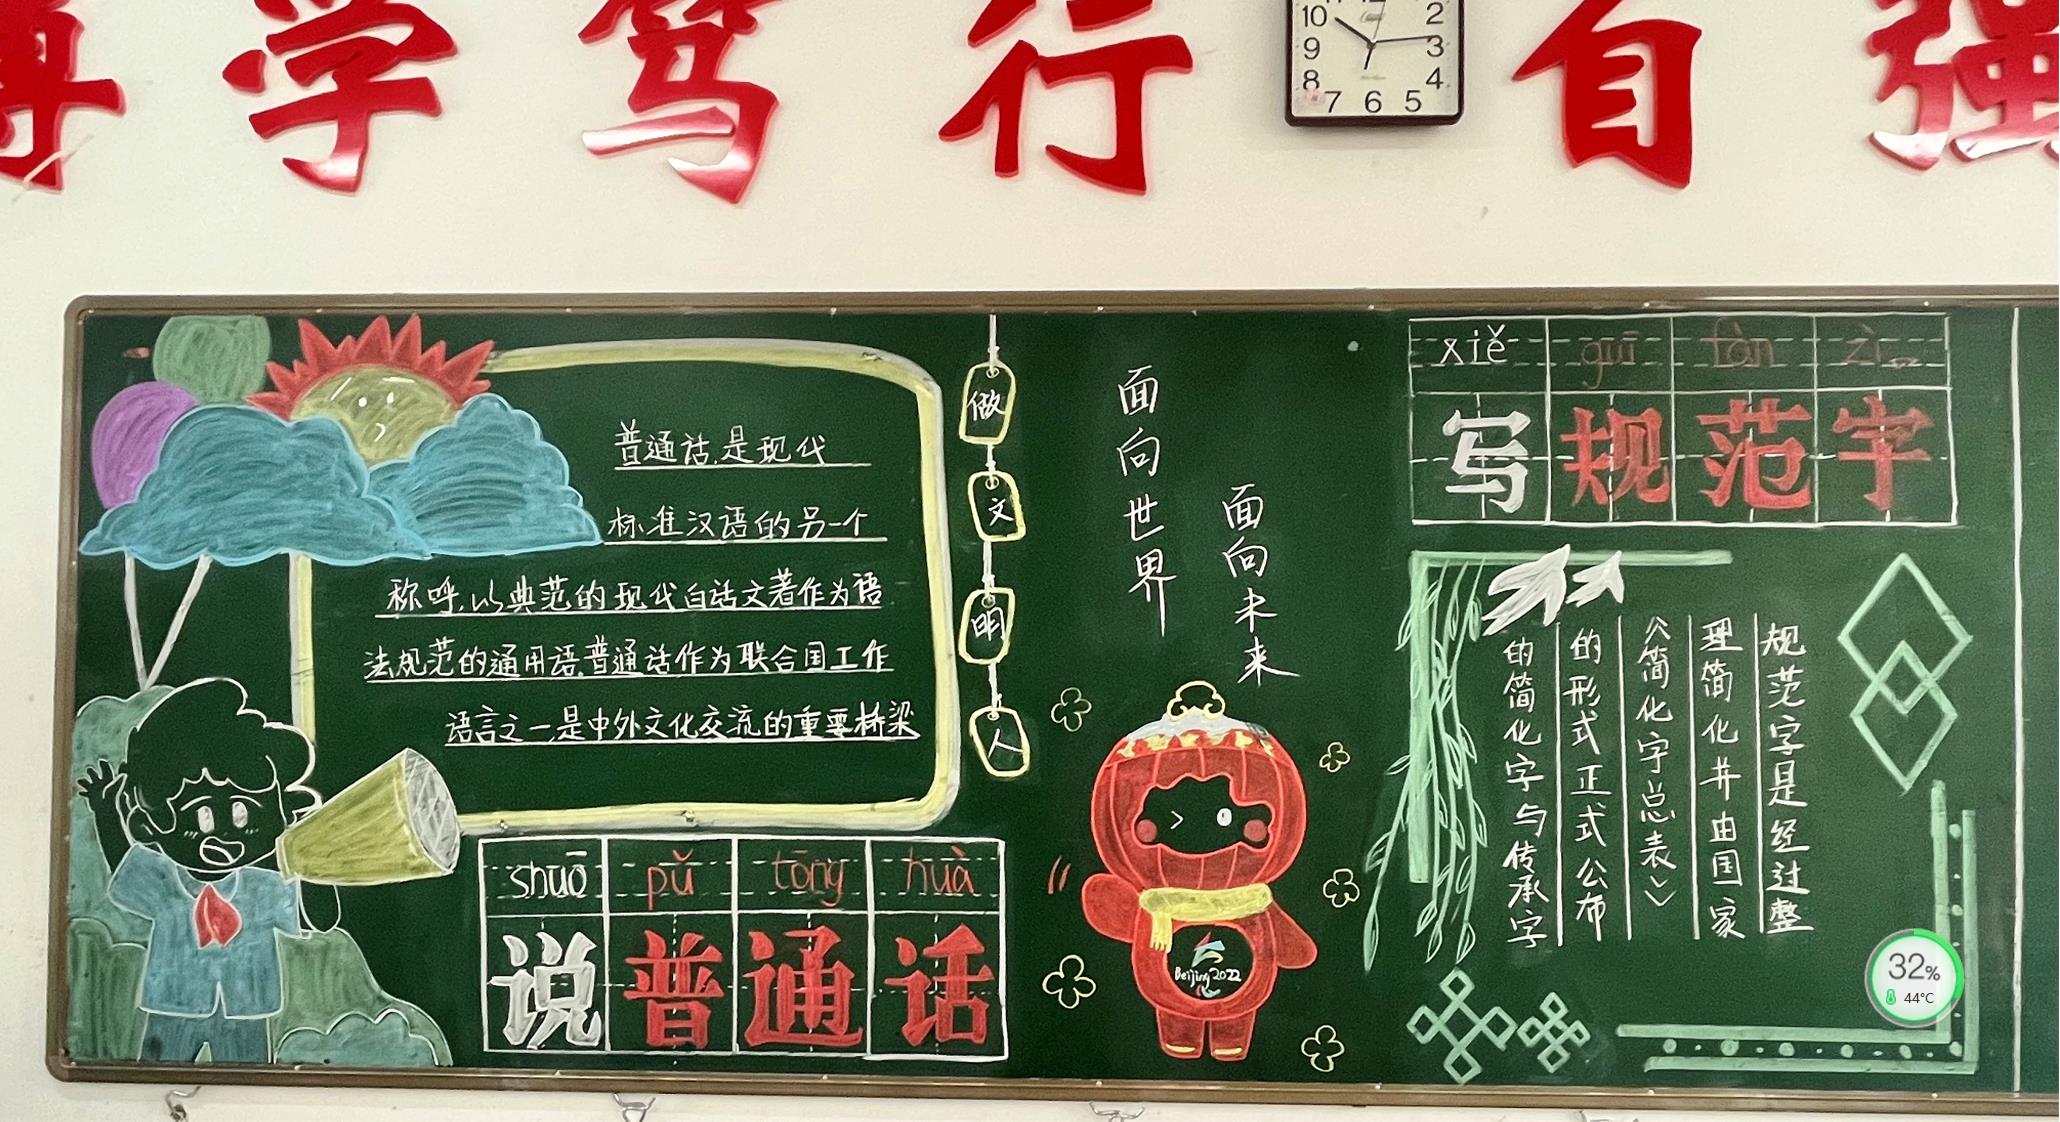 博学笃行自强
10
9
8
7
6
5
4
3
2
普通话,是现代
标准汉语的另一个
称呼,以典范的现代白话文著作为语
法规范的通用语,普通话作为联合国工作
语言之一,是中外文化交流的重要桥梁
shuō pǔ tōng huà
说普通话
做文明人
面向世界
面向未来
Beijing 2022
xiě guī fàn zì
写规范字
规范字是经过整
理简化并由国家
《简化字总表》
的形式正式公布
的简化字与传承字
32%
44°C